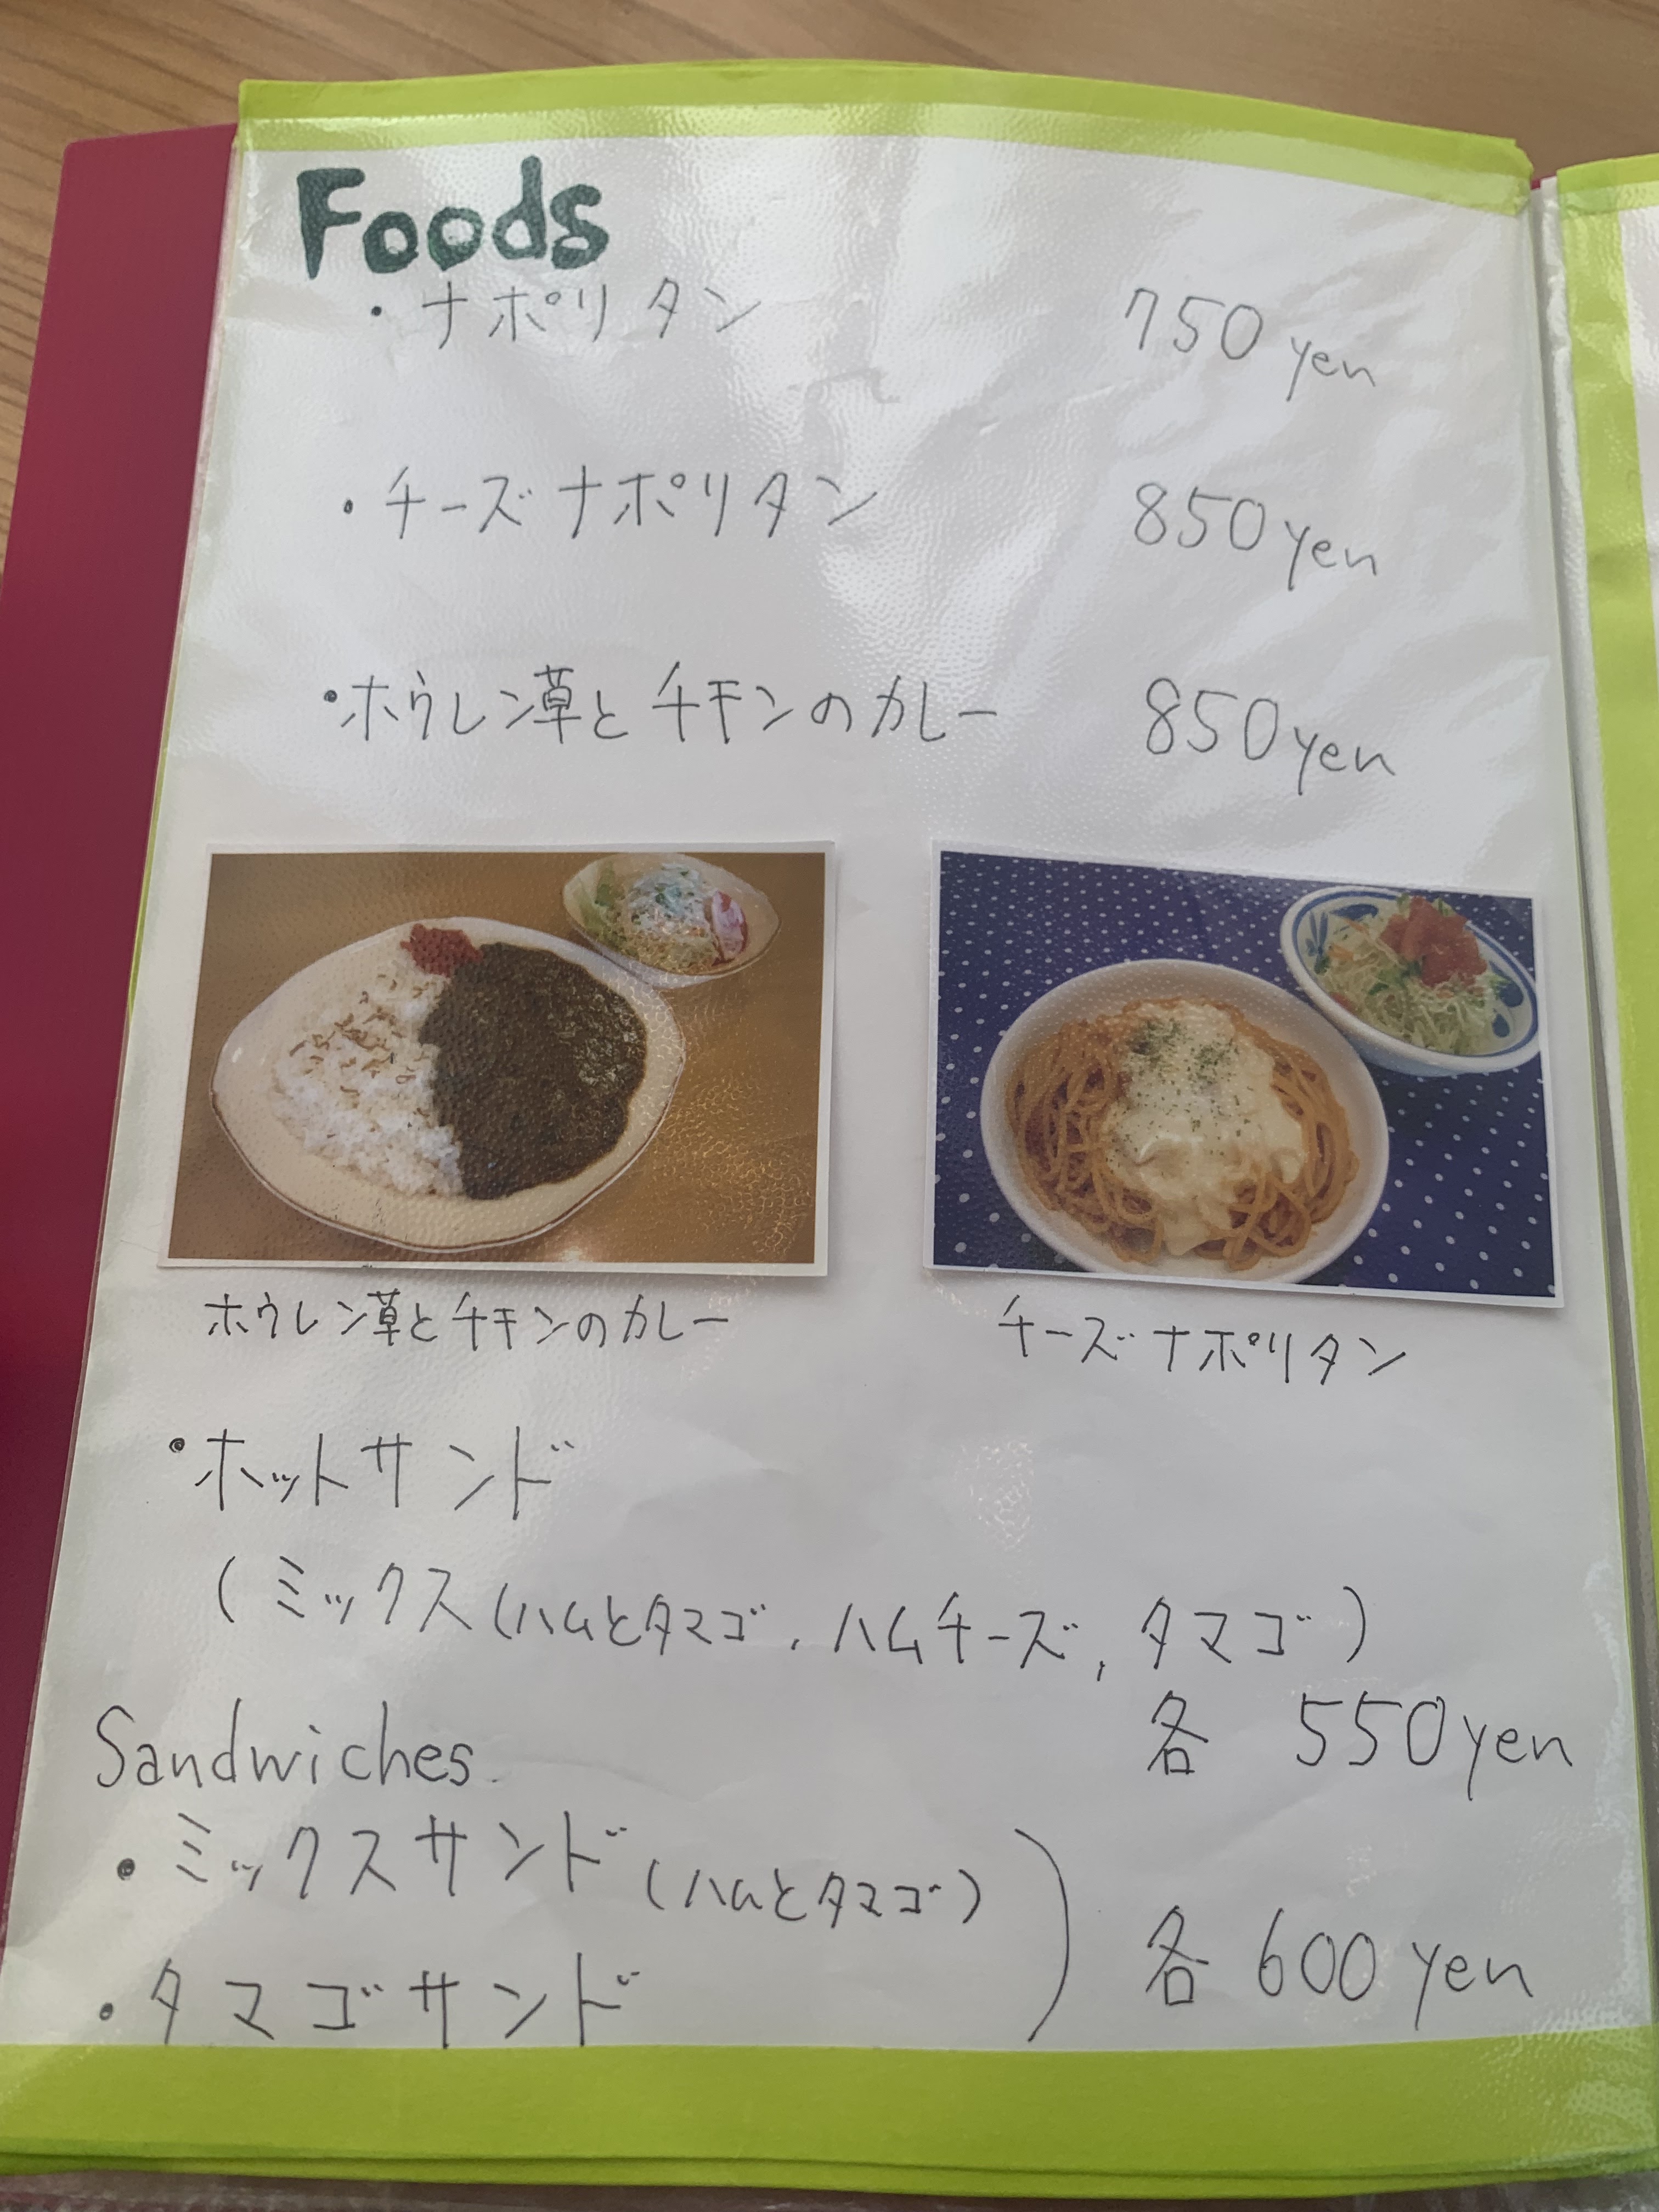 Foods
・ナポリタン 750 yen
・チーズナポリタン 850 yen
・ホウレン草とチキンのカレー 850 yen
ホウレン草とチキンのカレー
チーズナポリタン
・ホットサンド
(ミックス(ハムとタマゴ, ハムチーズ, タマゴ)
各 550 yen
Sandwiches
・ミックスサンド(ハムとタマゴ)
・タマゴサンド
各 600 yen